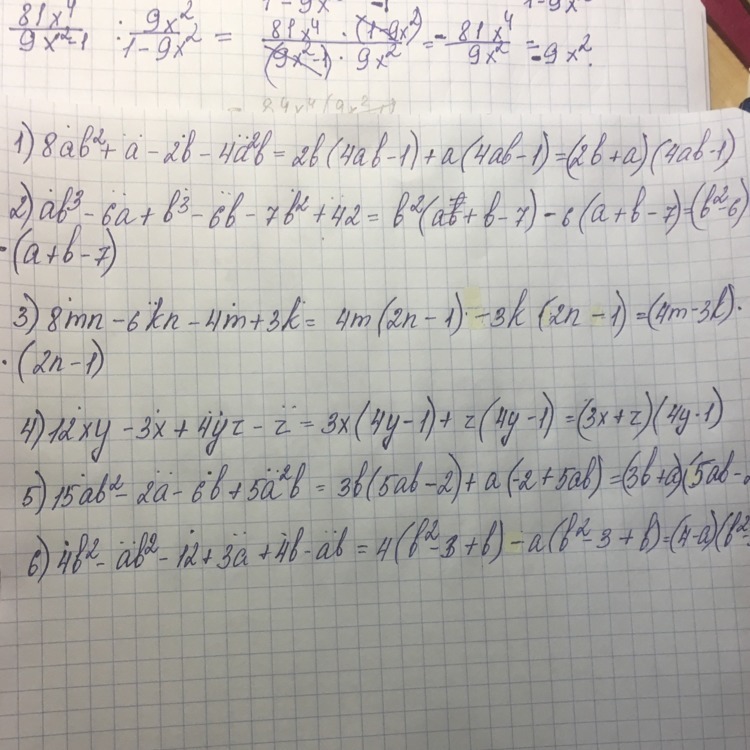 81x⁴/(9x²-1) : 9x²/(1-9x²) = 81x⁴·(1-9x²)/((9x²-1)·9x²) = -81x⁴/9x² = -9x².
1) 8ab²+a-2b-4a²b=2b(4ab-1)+a(4ab-1)=(2b+a)(4ab-1)
2) ab³-6a+b³-6b-7b²+42= b²(ab+b-7)-6(a+b-7)=(b²-6)
·(a+b-7)
3) 8mn-6kn-4m+3k= 4m(2n-1)-3k(2n-1)=(4m-3k)·
·(2n-1)
4) 12xy-3x+4yz-z=3x(4y-1)+z(4y-1)=(3x+z)(4y-1)
5) 15ab²-2a-6b+5a²b=3b(5ab-2)+a(-2+5ab)=(3b+a)(5ab-2
6) 4b²-ab²-12+3a+4b-ab=4(b²-3+b)-a(b²-3+b)=(4-a)(b²-